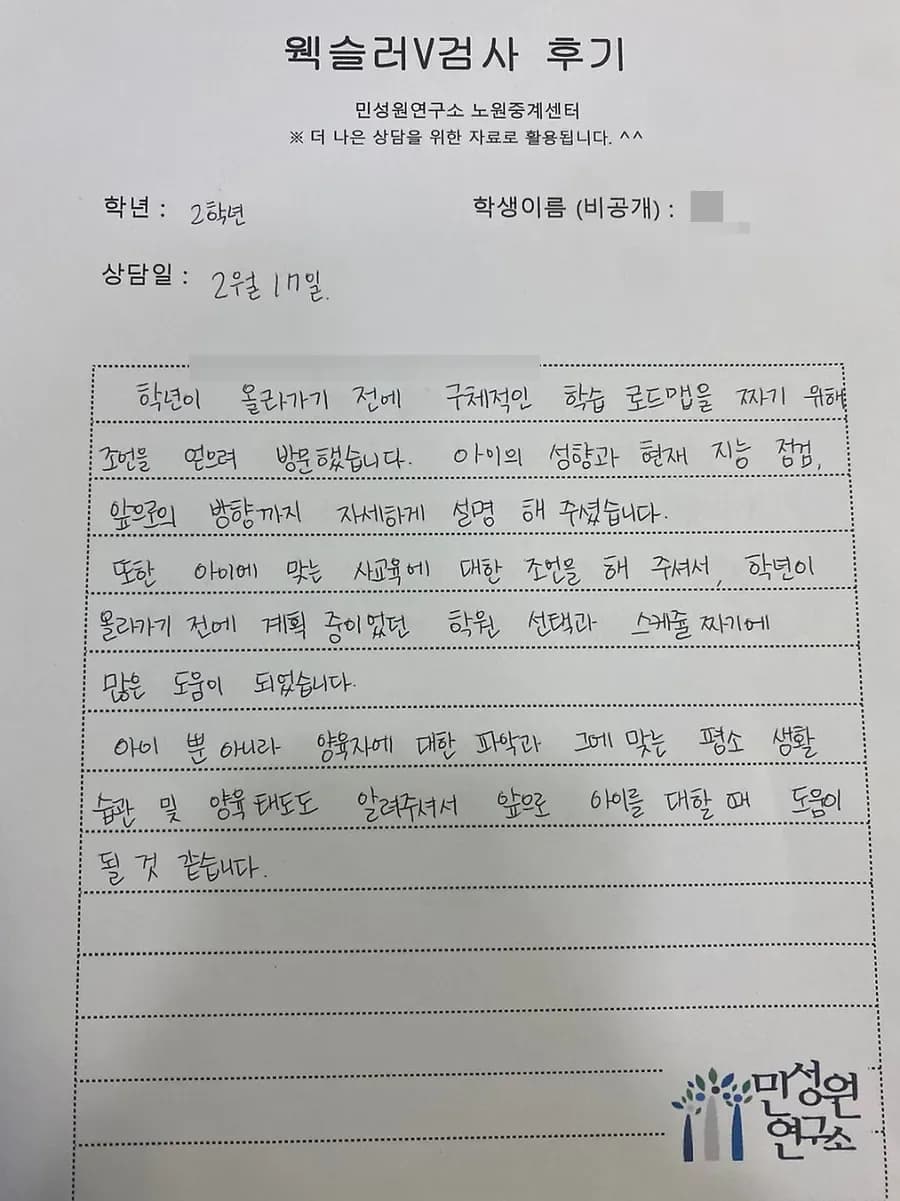 웩슬러V검사 후기
민성원연구소 노원중계센터
※ 더 나은 상담을 위한 자료로 활용됩니다. ^^
학년 : 2학년 학생이름 (비공개) :
상담일 : 2월 17일.
학년이 올라가기 전에 구체적인 학습 로드맵을 짜기 위해
조언을 얻으려 방문했습니다. 아이의 성향과 현재 지능 점검,
앞으로의 방향까지 자세하게 설명 해 주셨습니다.
또한 아이에 맞는 사교육에 대한 조언을 해 주셔서, 학년이
올라가기 전에 계획 중이었던 학원 선택과 스케줄 짜기에
많은 도움이 되었습니다.
아이 뿐 아니라 양육자에 대한 파악과 그에 맞는 평소 생활
습관 및 양육 태도도 알려주셔서 앞으로 아이를 대할 때 도움이
될 것 같습니다.
민성원
연구소